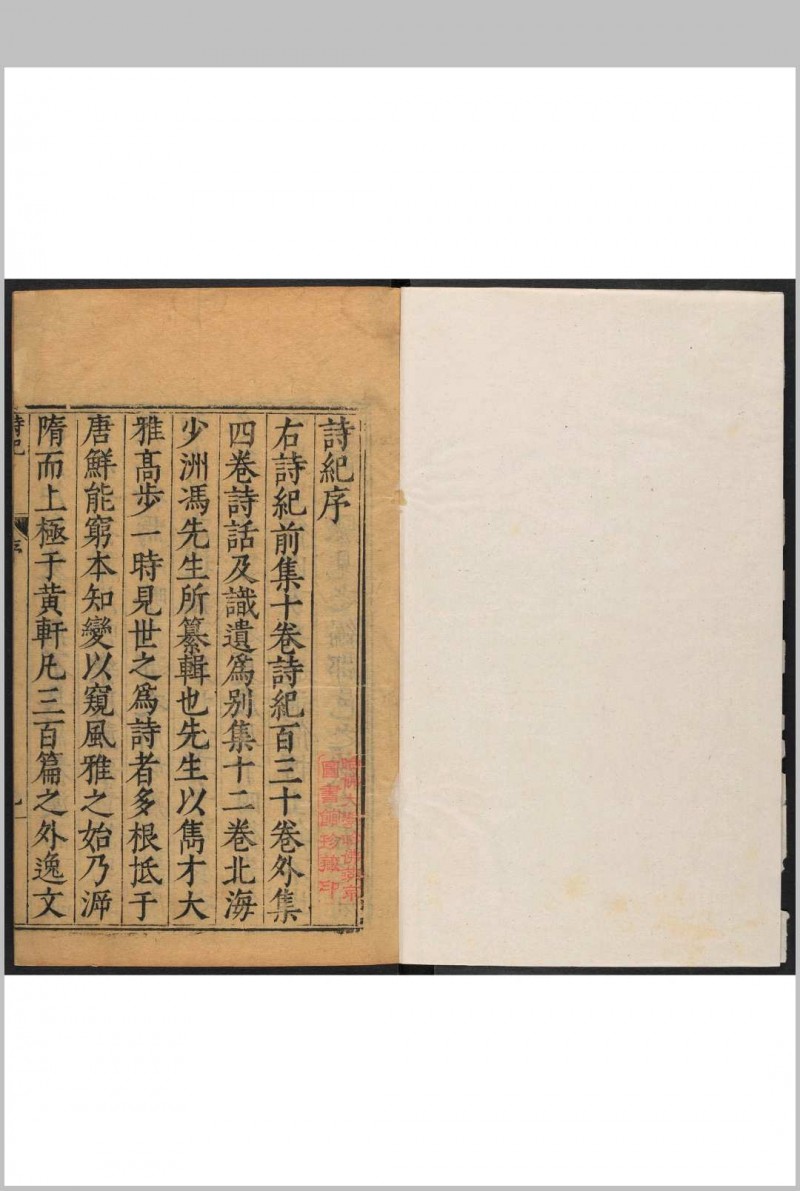 詩紀序
右詩紀前集十卷詩紀百三十卷外集
四卷詩話及識遺爲别集十二卷北海
少洲馮先生所纂輯也先生以雋才大
雅髙步一時見世之爲詩者多根柢于
唐鮮能窮本知變以窺風雅之始乃溯
隋而上極于黄軒凡三百篇之外逸文
詩紀
序
哈佛大學哈佛燕京
圖書館珍藏印